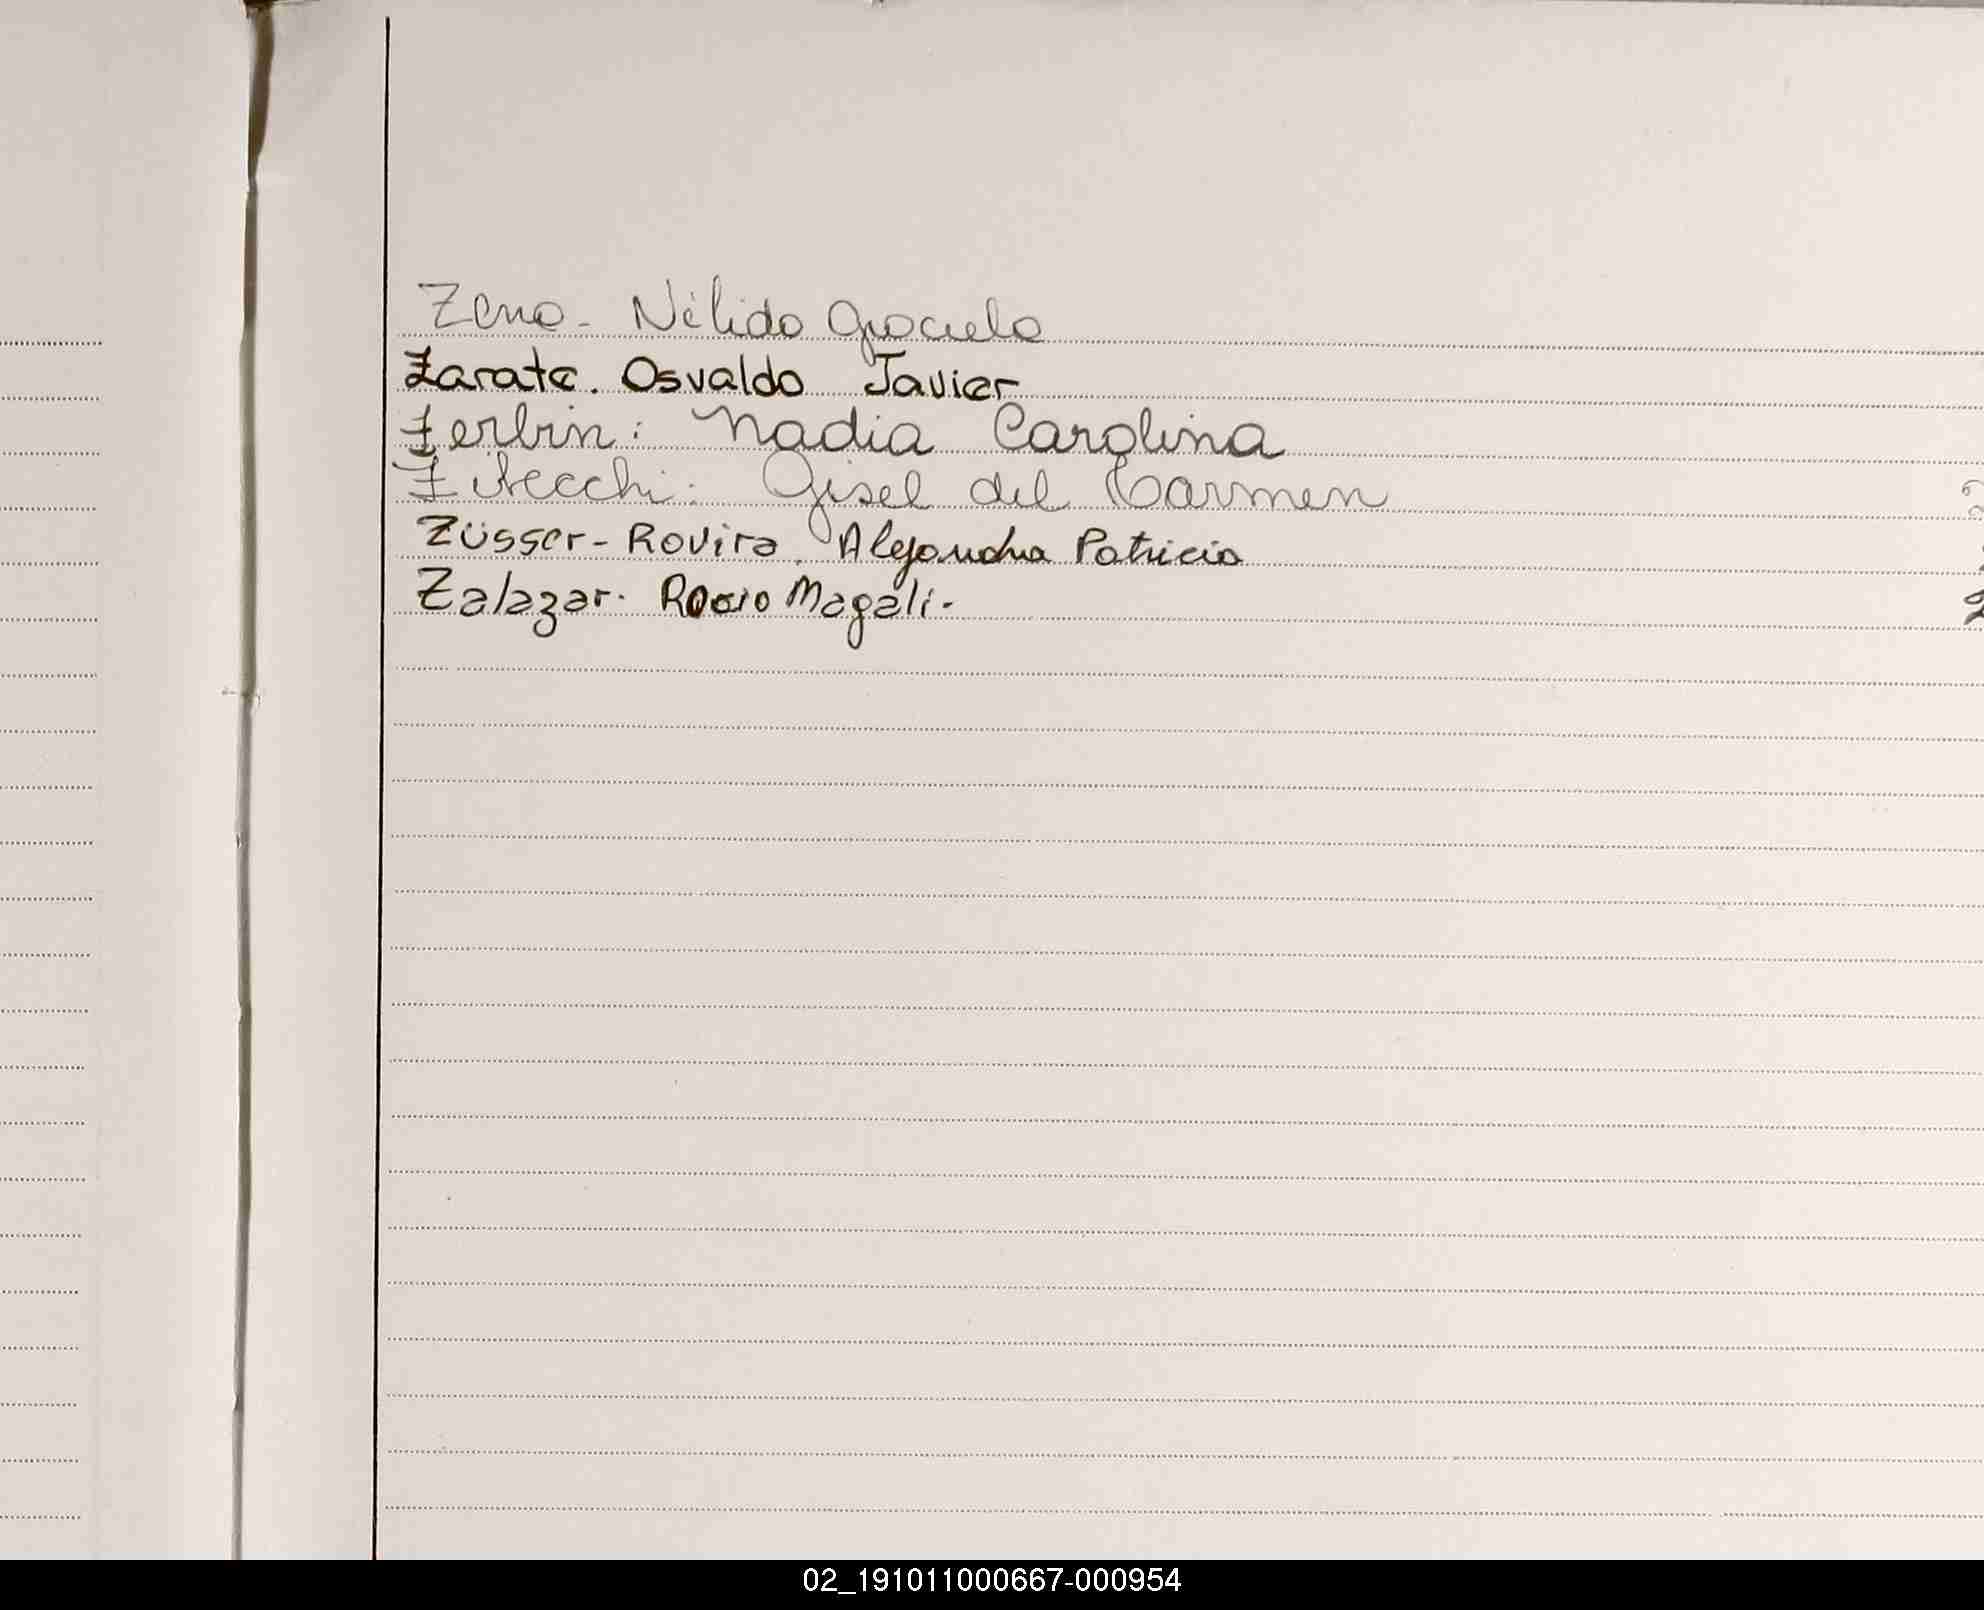 Zeno - Nélida Graciela
Zarate. Osvaldo Javier
Zerbin: Nadia Carolina
Gisel del Carmen
Züsser - Rovira. Alejandra Patricia
Zalazar. Rocio Magali -
02_191011000667-000954